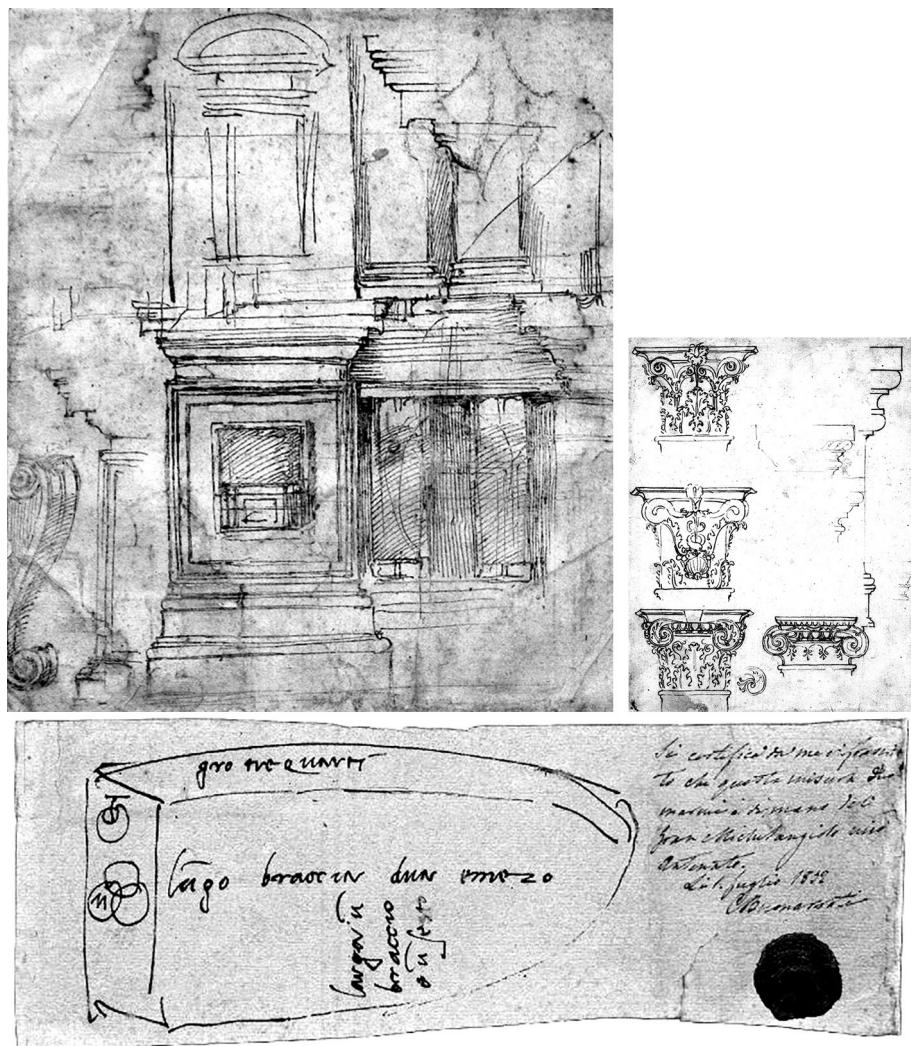 gro tre quarti
lūgo braccia dua emezo
largo ū
braccio
e ū sesto
Si certifica da me infrascrit
to che questa misura di
marmi è di mano del
Gran Michelangiolo mio
Antenato.
luglio
Buonarroti